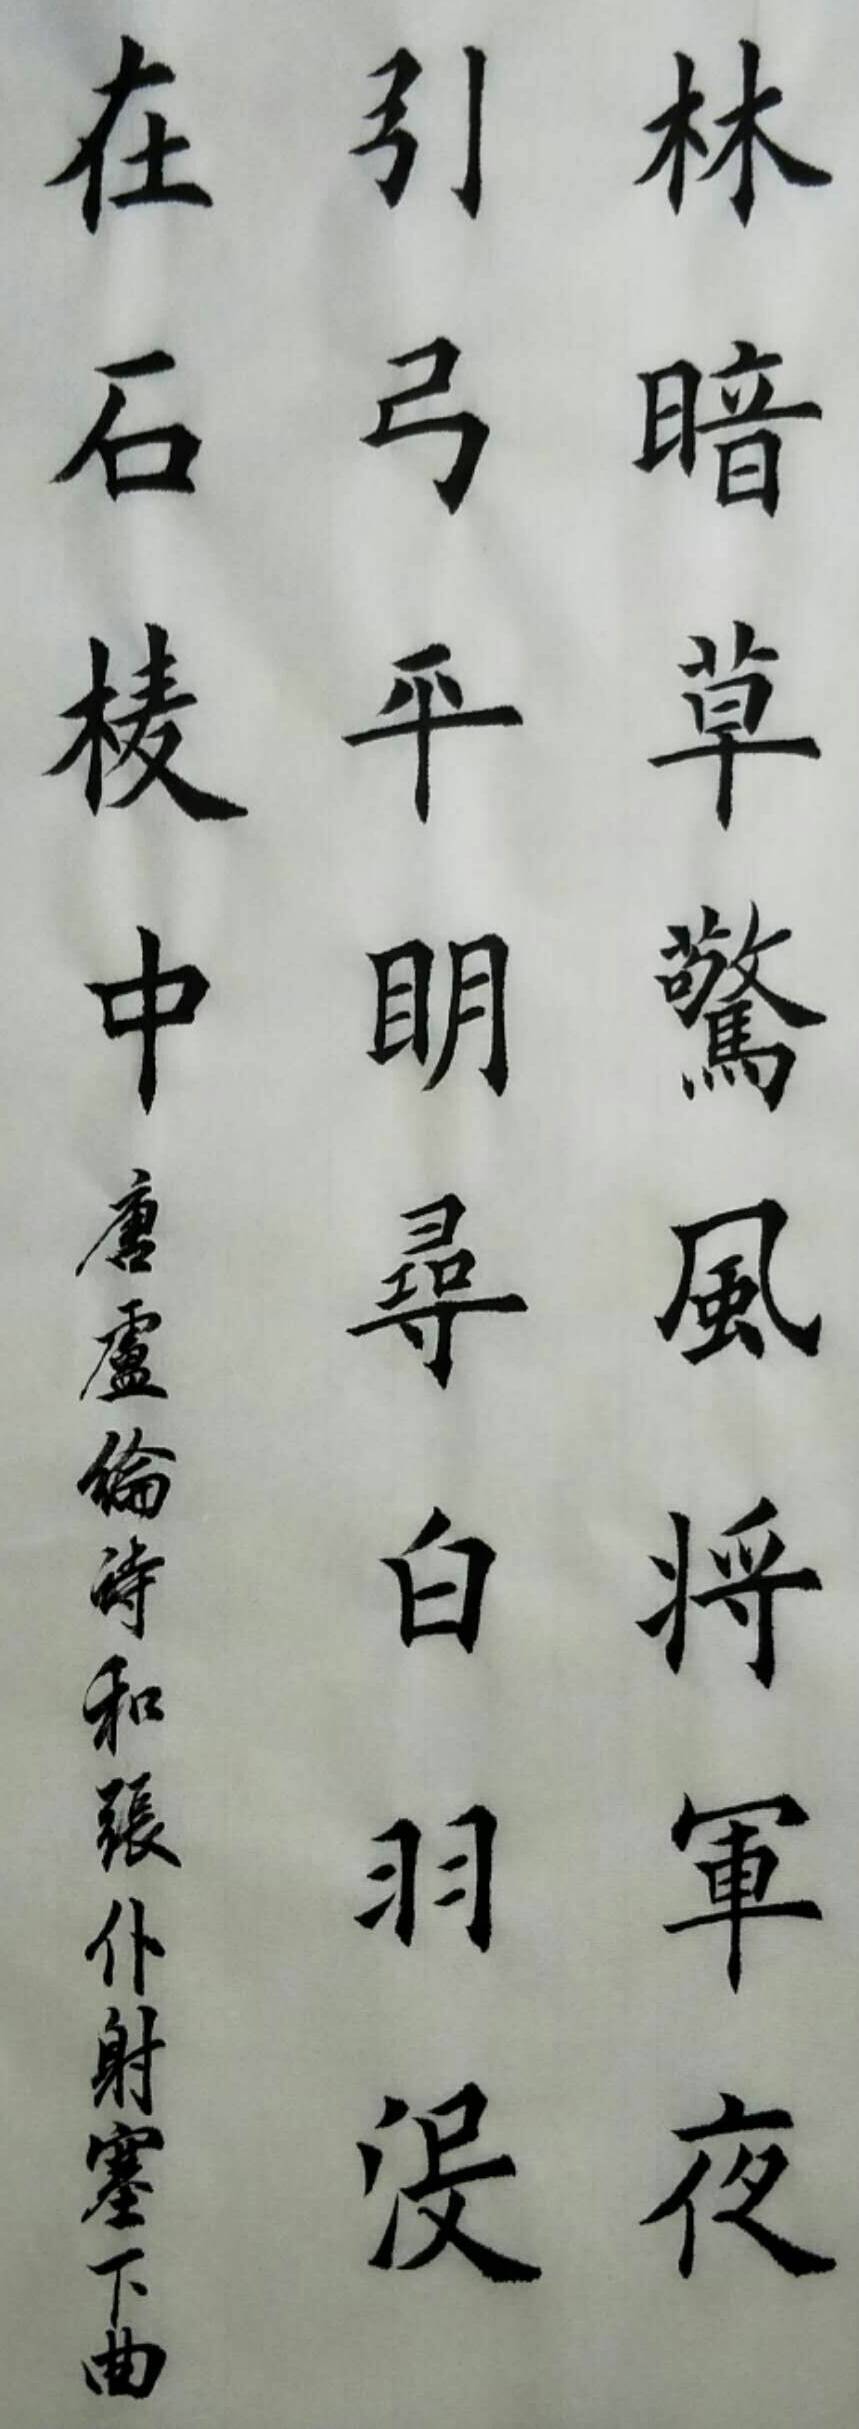 林暗草驚風将軍夜
引弓平明尋白羽没
在石棱中
唐盧綸詩和張仆射塞下曲